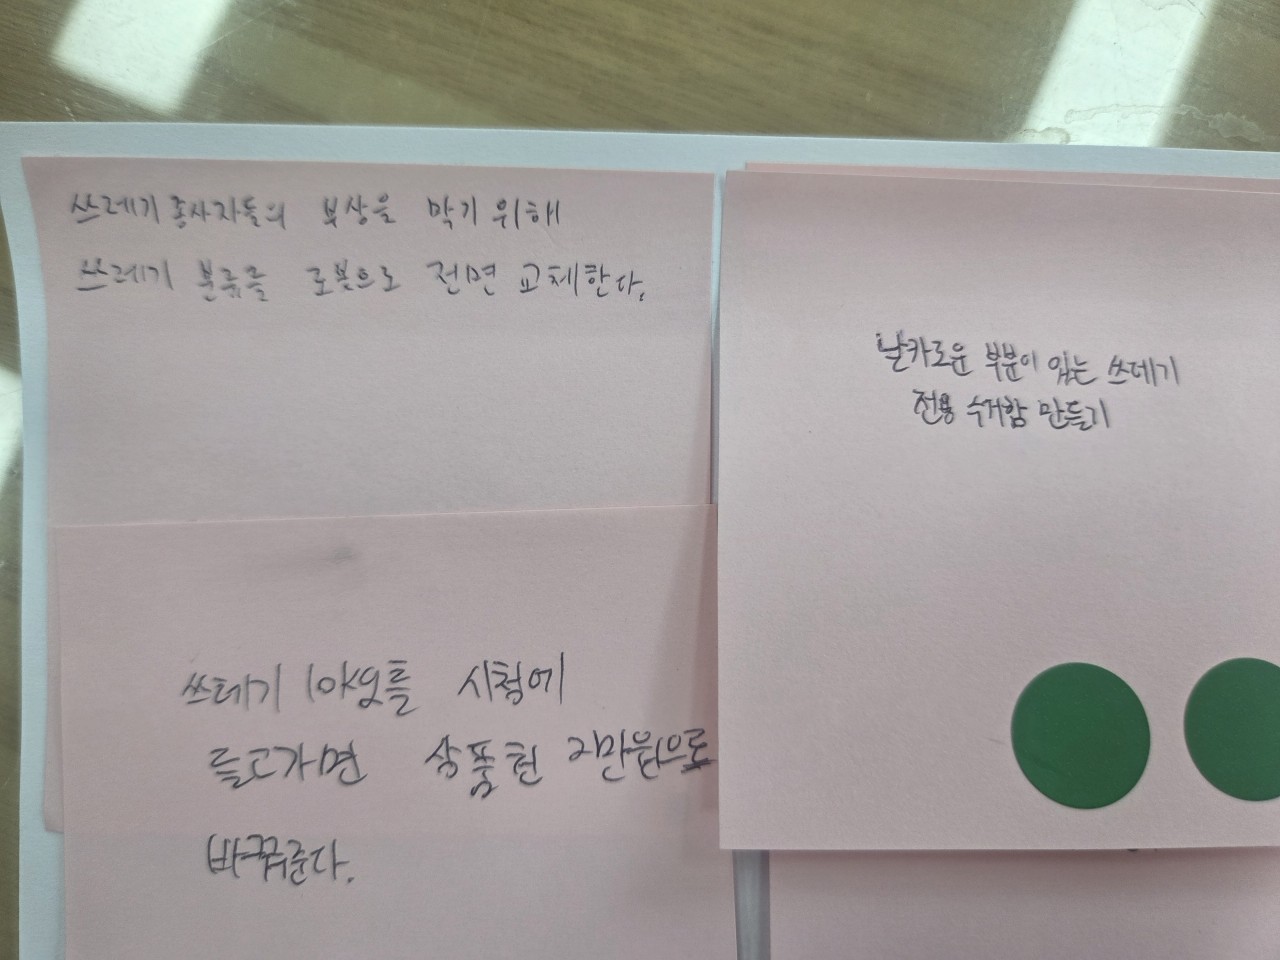 쓰레기 종사자들의 부상을 막기 위해
쓰레기 분류를 로봇으로 전면 교체한다.
날카로운 부분이 있는 쓰레기
전용 수거함 만들기
쓰레기 시청에
들고가면 상품권 2만원으로
바꿔준다.